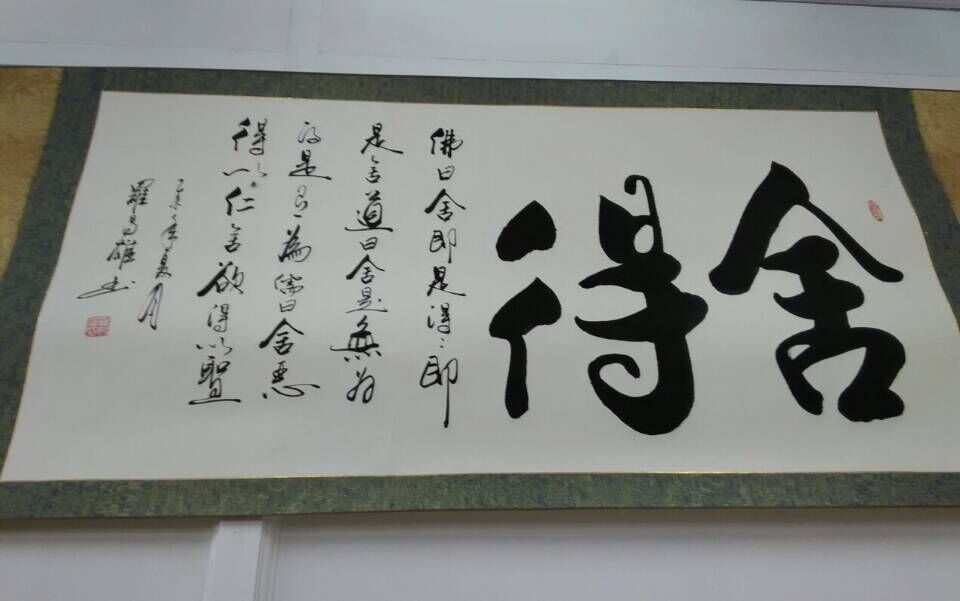 舍得
佛曰舍即是得〻即
是舍道曰舍是無为
得是有為儒曰舍惡
得以仁舍欲得以聖
乙未年夏月
羅雄书